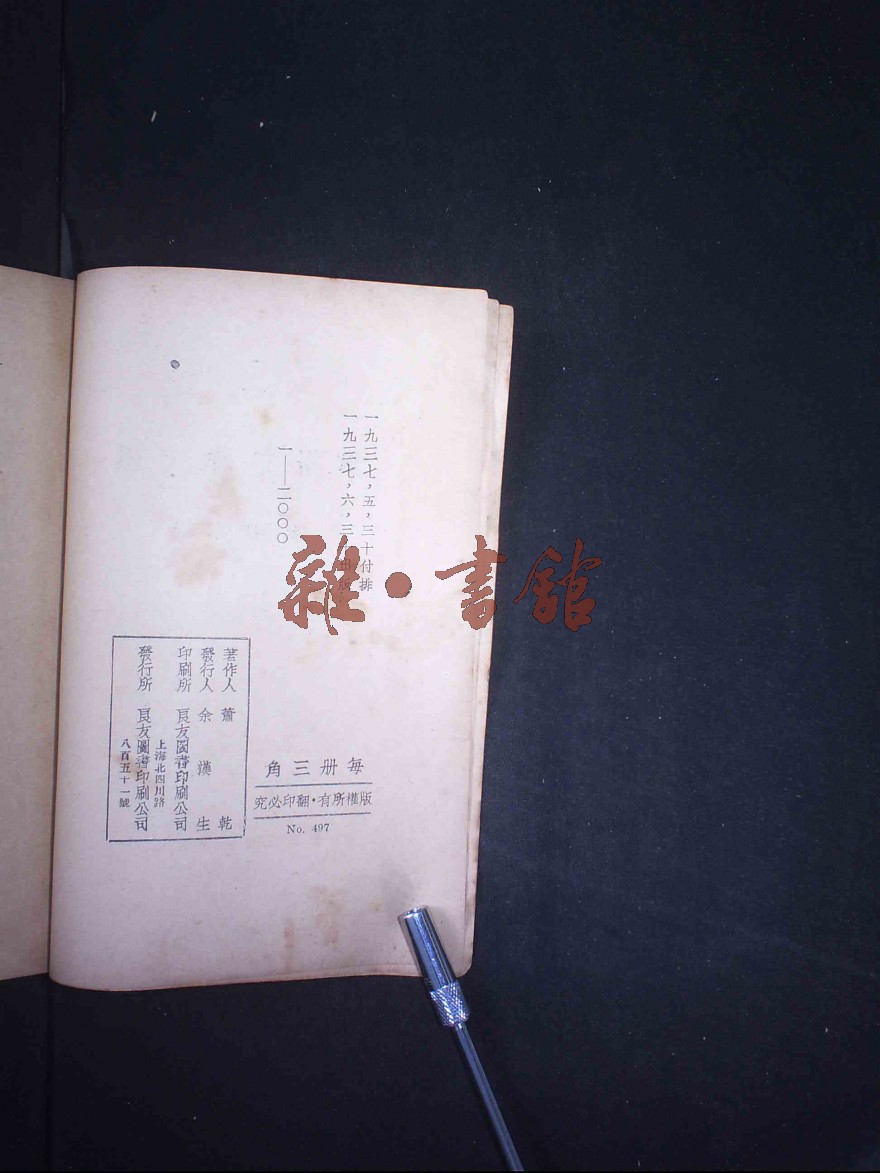 一九三七，五，三十付排
一九三七，六，三　出版
一——二〇〇〇
每册三角
版權所有·翻印必究
No. 497
著作人　蕭乾
發行人　余漢生
印刷所　良友圖書印刷公司
上海北四川路
發行所　良友圖書印刷公司
八百五十一號
雜·書館